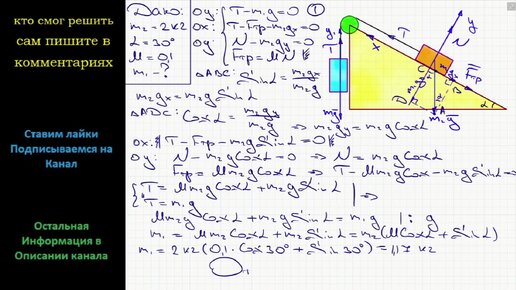 кто смог решить
сам пишите в
комментариях
Ставим лайки
Подписываемся на
Канал
Остальная
Информация в
Описании канала
Дано:
m₂ = 2 кг
α = 30°
μ = 0,1
m₁ - ?
оу: T - m₁g = 0 ①
ох: T - Fтр - m₂gx = 0
оу: N - m₂gy = 0
Fтр = μN
△ABC: Sin α = m₂gx / m₂g
m₂gx = m₂g Sin α
△ADC: Cos α = m₂gy / m₂g ⇒ m₂gy = m₂g Cos α
ох: T - Fтр - m₂g Sin α = 0
оу: N - m₂g Cos α = 0 ⇒ N = m₂g Cos α
Fтр = μm₂g Cos α ⇒ T - μm₂g Cos α - m₂g Sin α = 0
T = μm₂g Cos α + m₂g Sin α
T = m₁g ⇒
μm₂g Cos α + m₂g Sin α = m₁g | : g
m₁ = μm₂ Cos α + m₂ Sin α = m₂(μ Cos α + Sin α)
m₁ = 2 кг (0,1 · Cos 30° + Sin 30°) = 1,17 кг